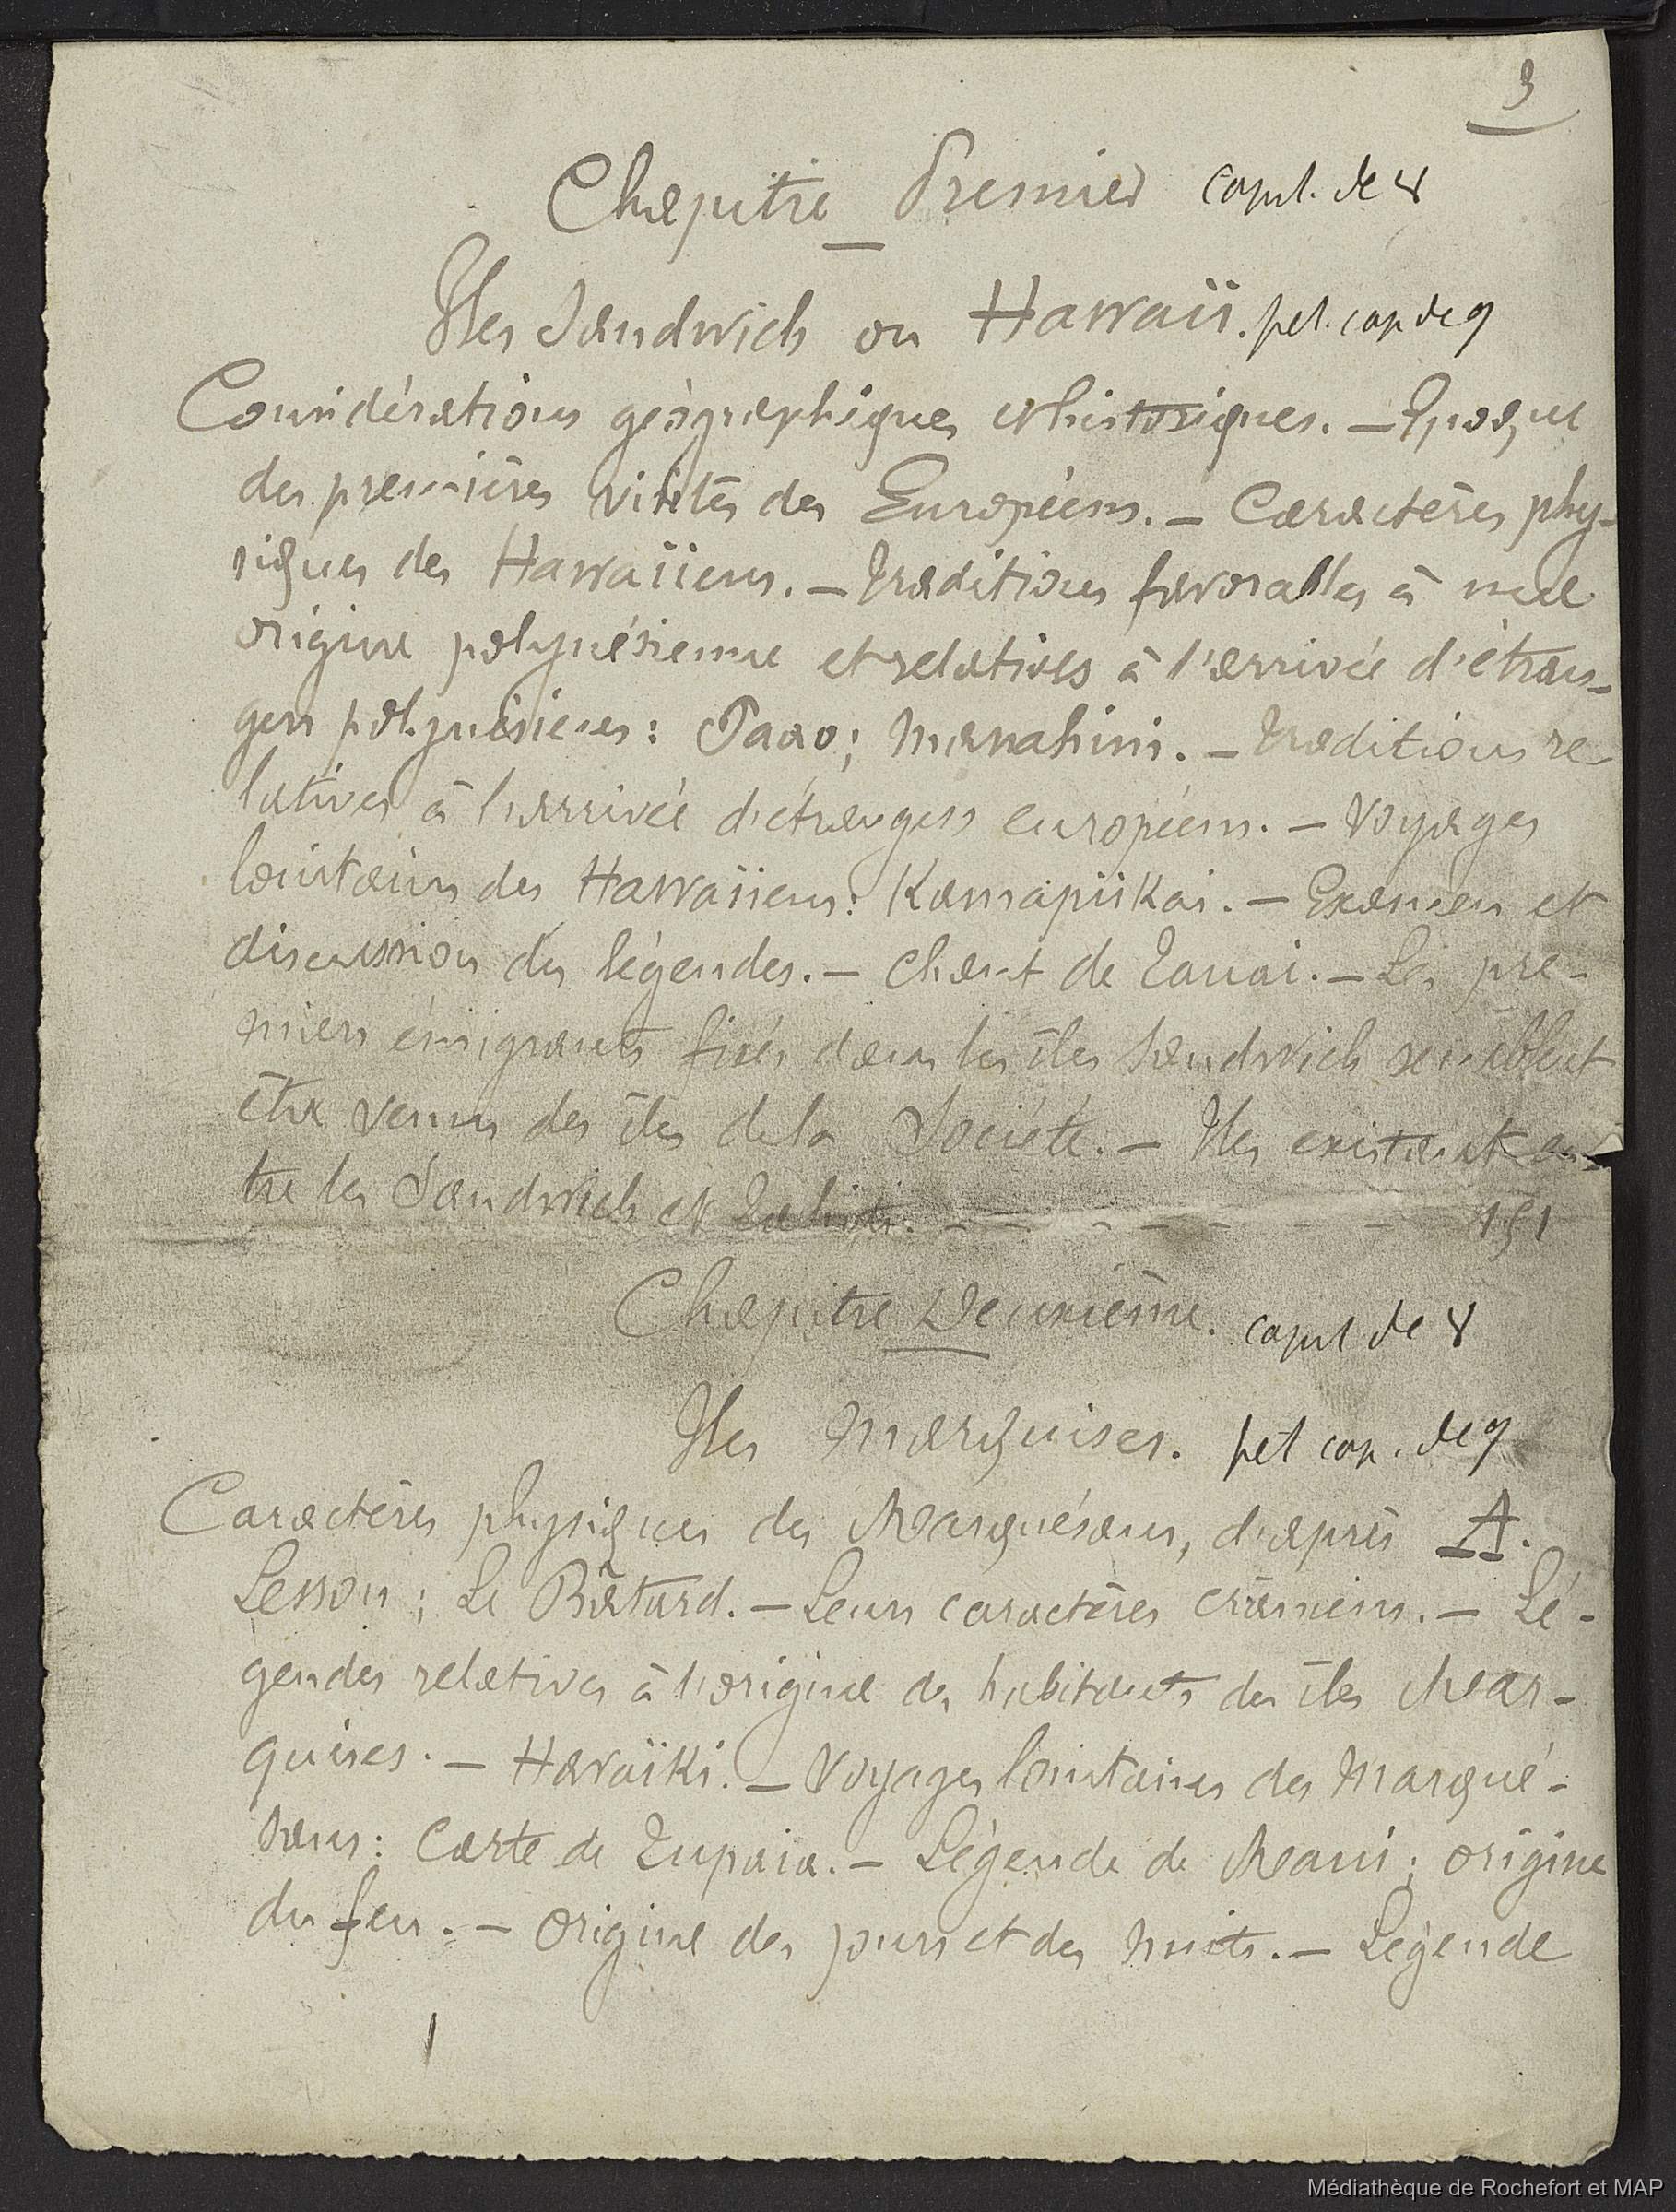 3
Chapitre Premier capit. de 8
Iles Sandwich ou Hawaii. pet. cap de 9
Considérations géographiques et historiques. — Epoque
des premières visites des Européens. — Caractères phy-
siques des Hawaiiens. — Traditions favorables à une
origine polynésienne et relatives à l'arrivée d'étran-
gers polynésiens : Paao ; Manahini. — Traditions re-
latives à l'arrivée d'étrangers européens. — Voyages
lointains des Hawaiiens : Kamapiikai. — Examen et
discussion des légendes. — Chant de Tauai. — Les pre-
miers émigrants fixés dans les îles Sandwich semblent
être venus des îles de la Société. — Iles existant en-
tre les Sandwich et Tahiti. — — — — — — — — 151
Chapitre Deuxième. capit de 8
Iles Marquises. pet cap. de 9
Caractères physiques des Marquésans, d'après A.
Lesson ; Le Bâtard. — Leurs caractères crâniens. — Lé-
gendes relatives à l'origine des habitants des îles Mar-
quises. — Havaïki. — Voyages lointains des Marqué-
sans : Carte de Tupaia. — Légende de Maui ; origine
du feu. — Origine des jours et des nuits. — Légende
1
Médiathèque de Rochefort et MAP